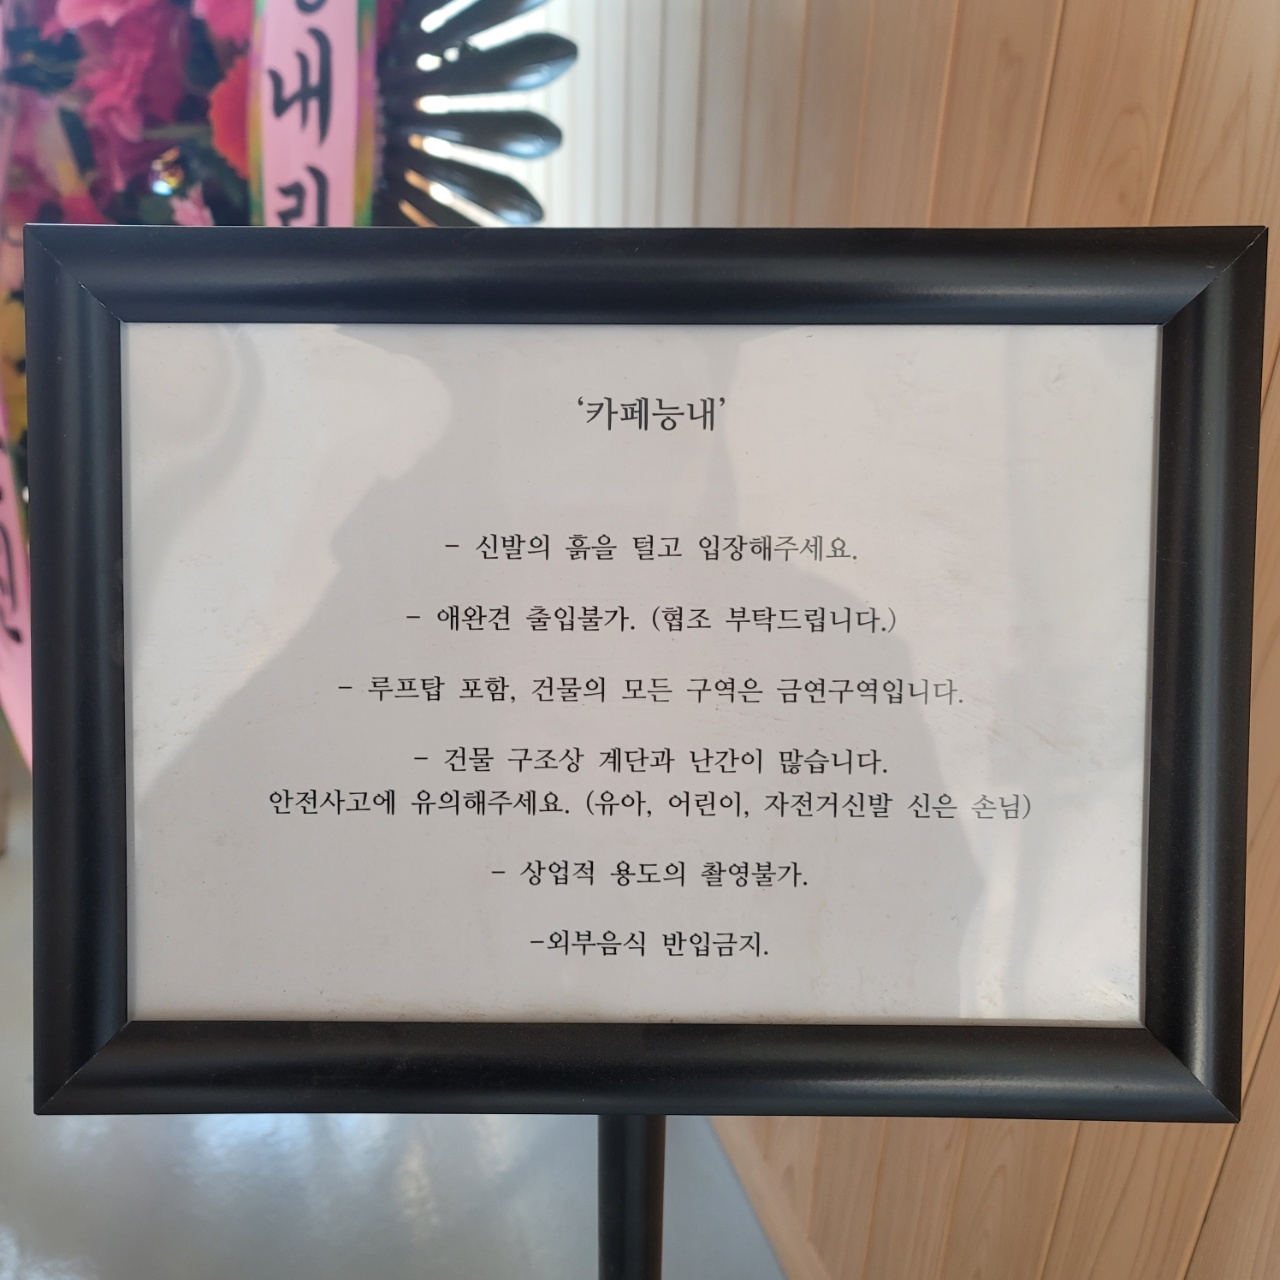 내
‘카페능내’
- 신발의 흙을 털고 입장해주세요.
- 애완견 출입불가. (협조 부탁드립니다.)
- 루프탑 포함, 건물의 모든 구역은 금연구역입니다.
- 건물 구조상 계단과 난간이 많습니다.
안전사고에 유의해주세요. (유아, 어린이, 자전거신발 신은 손님)
- 상업적 용도의 촬영불가.
-외부음식 반입금지.